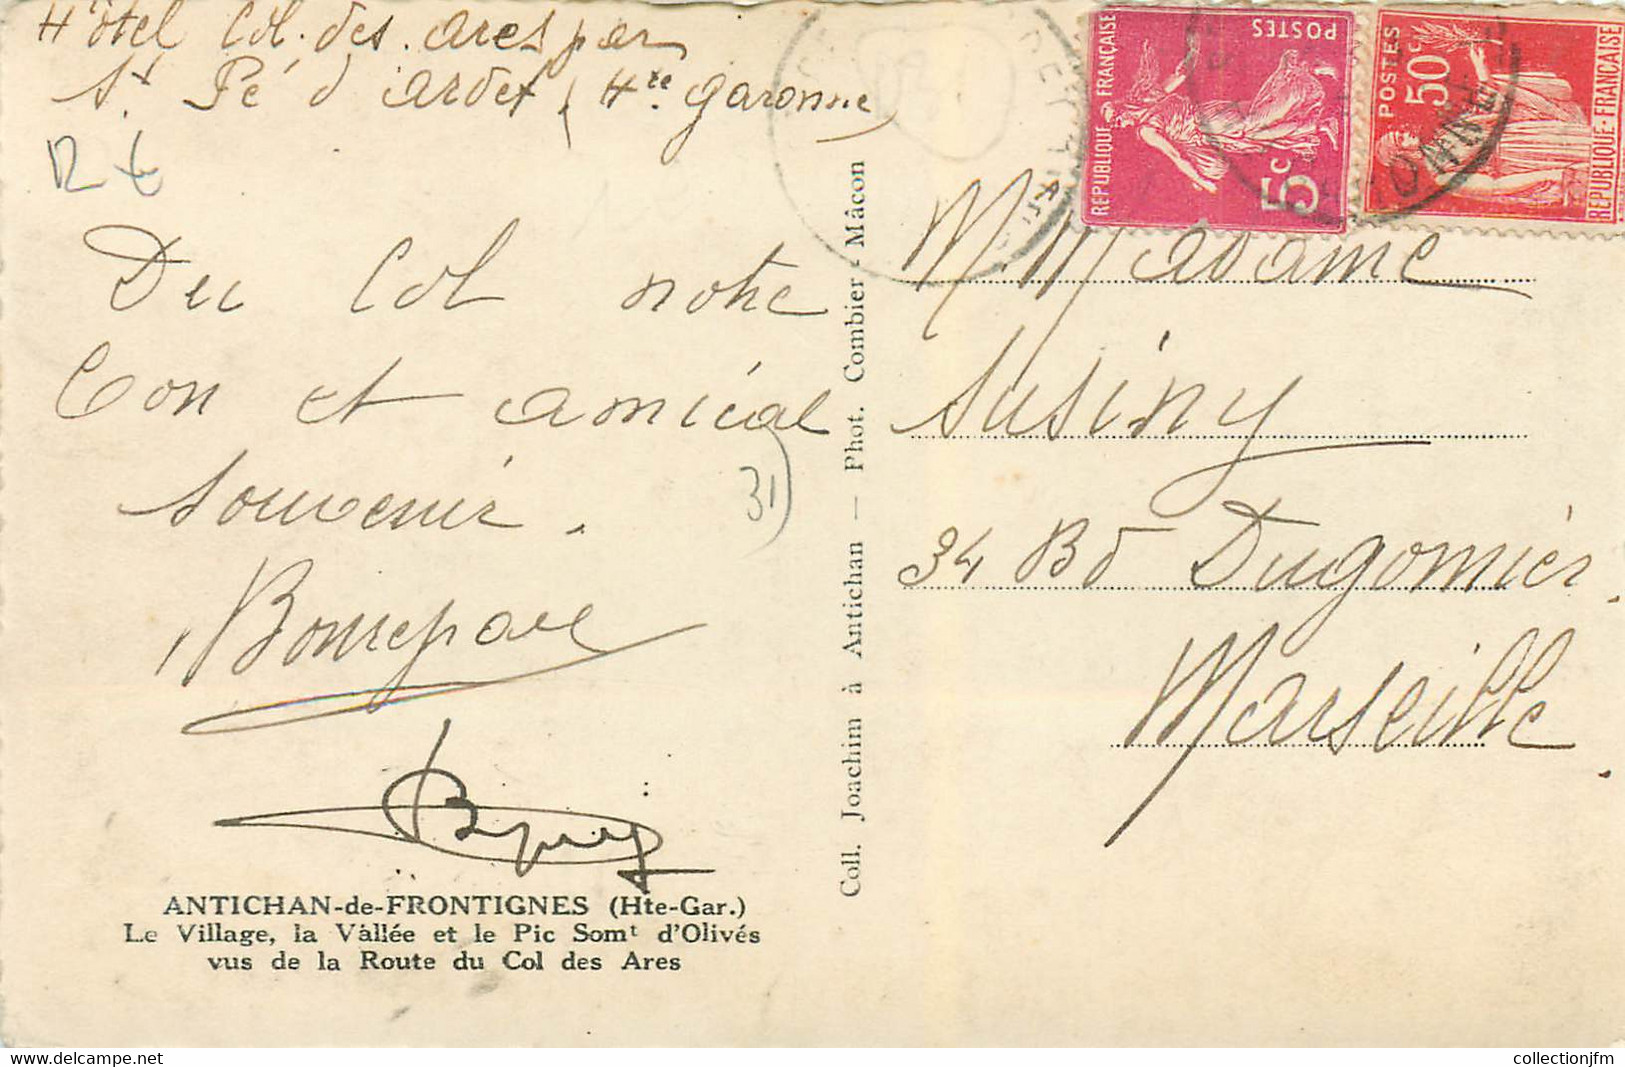 Hôtel Col. des. ares par
St Pé d'ardet, Hte garonne
Du Col notre
bon et amical
souvenir.
Bourepaue
31)
ANTICHAN-de-FRONTIGNES (Hte-Gar.)
Le Village, la Vallée et le Pic Somt d'Olivés
vus de la Route du Col des Ares
Coll. Joachim à Antichan — Phot. Combier - Mâcon
REPUBLIQUE FRANÇAISE
POSTES
5c
POSTES
50c
REPUBLIQUE-FRANÇAISE
M. Madame
Susiny
34 Bd Dugomier.
Marseille.
collectionjfm